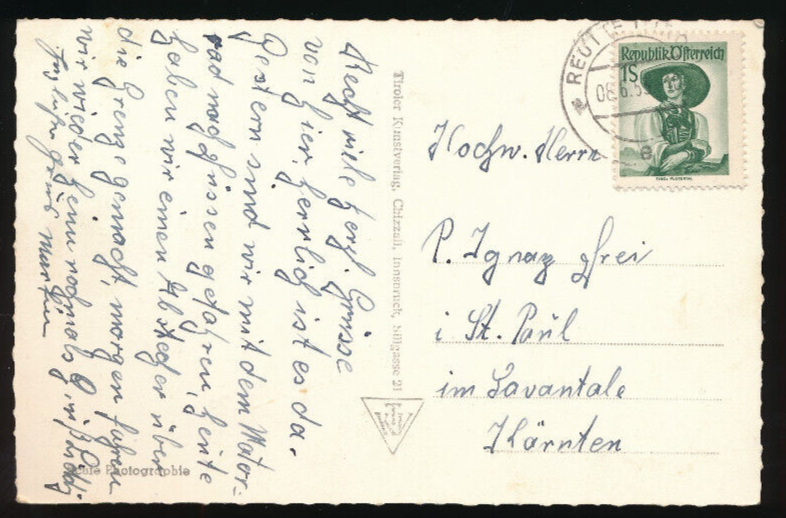 Recht viele herzl. Grüsse
von hier, herrlich ist es da.
Gestern sind wir mit dem Motor-
rad nach Füssen gefahren, heute
haben wir einen Abstecher über
die Grenze gemacht, morgen fahren
wir wieder heim nochmals Grüße
Grüß Martin
Echte Photographie
Tiroler Kunstverlag, Chizzali, Innsbruck, Sillgasse 21
REUTTE
08.6.5
e
Republik Österreich
1S
Hochw. Herrn
P. Ignaz Frei
i St. Paul
im Lavantale
Kärnten